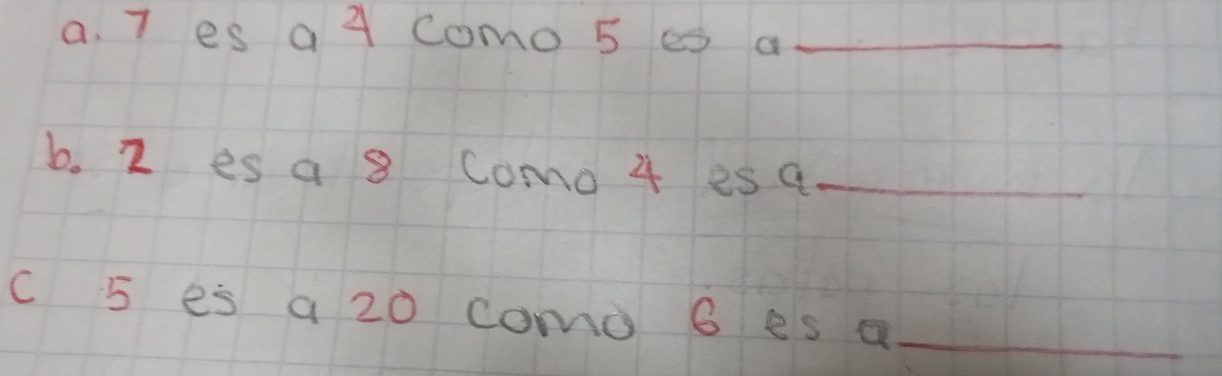 a. 7 es a 4 como 5 es a
b. 2 es a 8 como 4 es a
c 5 es a 20 como 6 es a